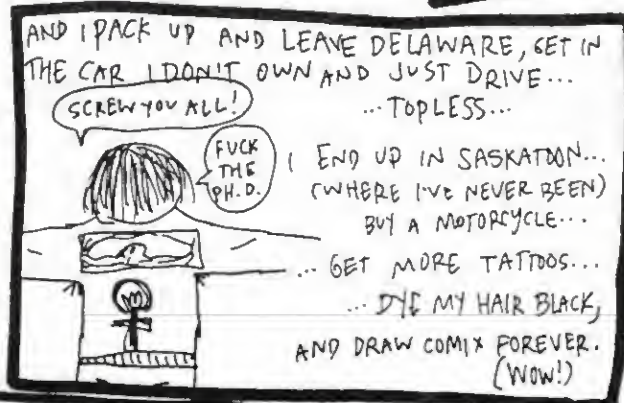 AND I PACK UP AND LEAVE DELAWARE, GET IN
THE CAR I DON'T OWN AND JUST DRIVE...
...TOPLESS...
SCREW YOU ALL!
FUCK
THE
PH.D.
I END UP IN SASKATOON...
(WHERE I'VE NEVER BEEN)
BUY A MOTORCYCLE...
...GET MORE TATTOOS...
...DYE MY HAIR BLACK,
AND DRAW COMIX FOREVER.
(WOW!)